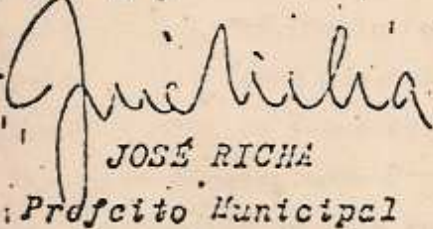 JOSÉ RICHA
Prefeito Municipal